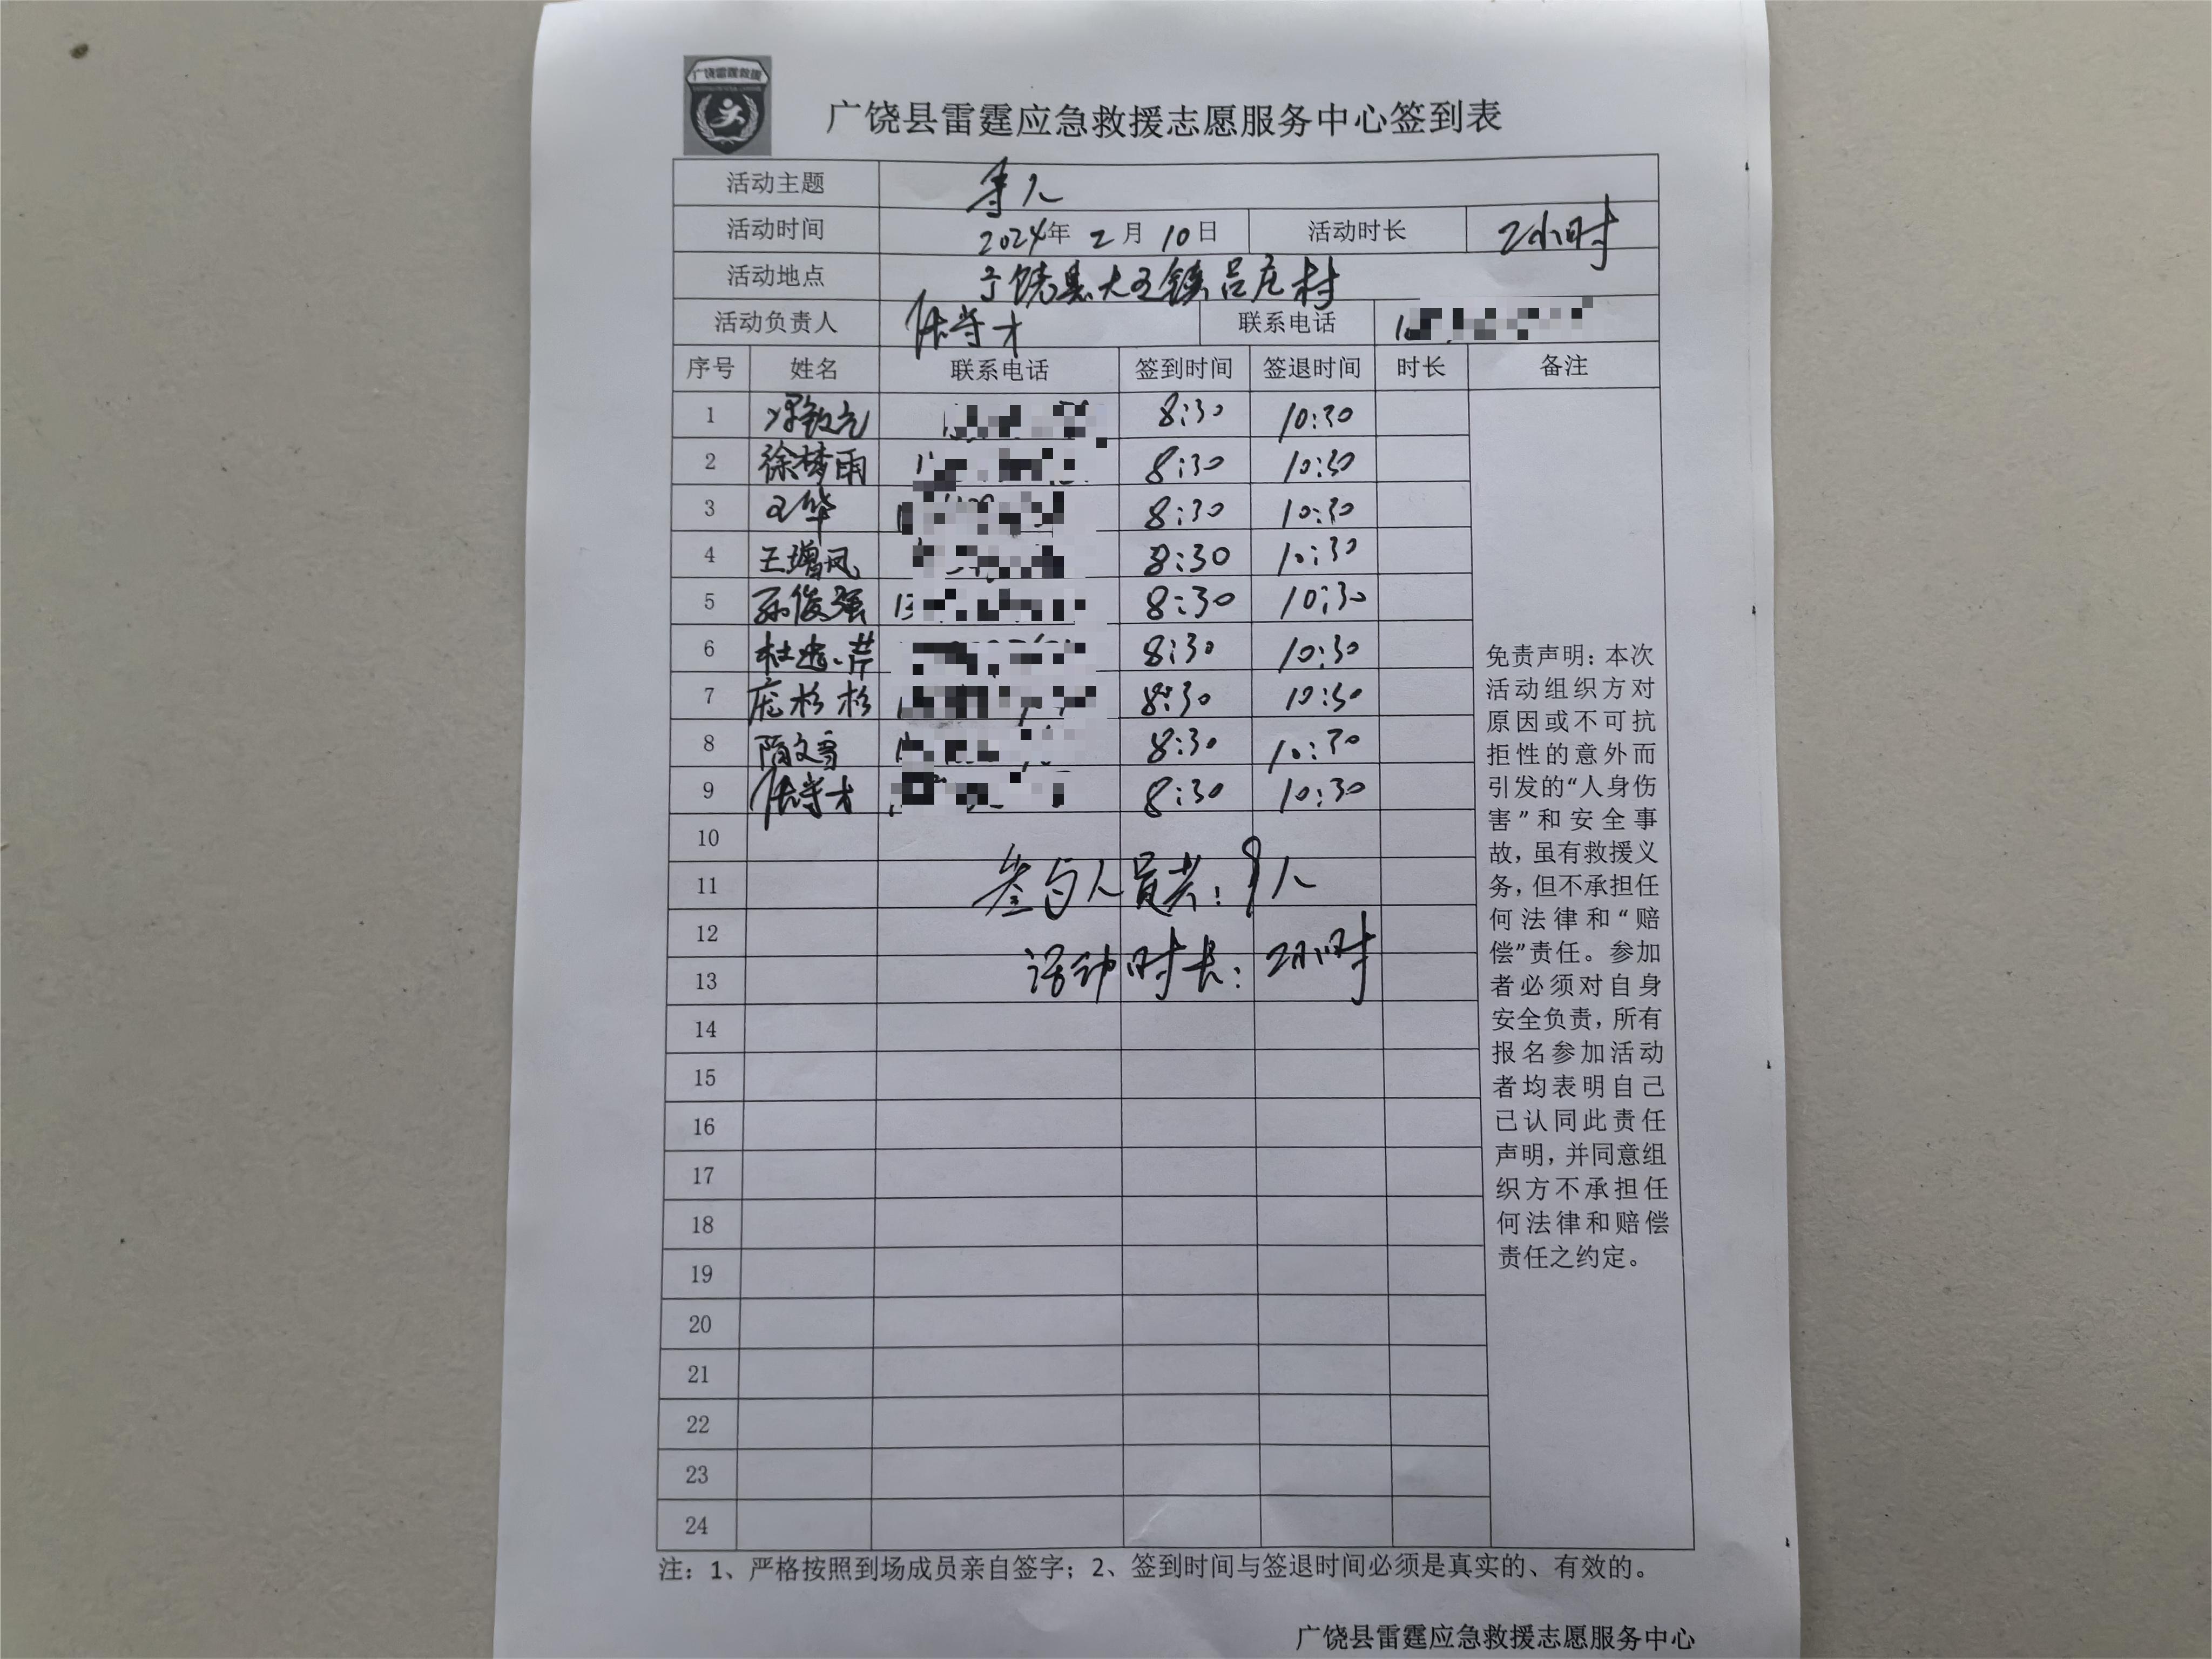 广饶雷霆救援
广饶县雷霆应急救援志愿服务中心签到表
活动主题 寻人
活动时间 2024年 2月 10日 活动时长 2小时
活动地点 广饶县大王镇吕庄村
活动负责人 任学才 联系电话
序号 姓名 联系电话 签到时间 签退时间 时长 备注
1 8:30 10:30
2 徐梦雨 8:30 10:30
3 王华 8:30 10:30
4 王增凤 8:30 10:30
5 孙俊强 8:30 10:30
6 8:30 10:30
7 庞杉杉 8:30 10:30
8 隋文雪 8:30 10:30
9 任学才 8:30 10:30
10
11 参与人员共:9人
12
13 活动时长:2小时
14
15
16
17
18
19
20
21
22
23
24
免责声明:本次
活动组织方对
原因或不可抗
拒性的意外而
引发的“人身伤
害”和安全事
故,虽有救援义
务,但不承担任
何法律和“赔
偿”责任。参加
者必须对自身
安全负责,所有
报名参加活动
者均表明自己
已认同此责任
声明,并同意组
织方不承担任
何法律和赔偿
责任之约定。
注:1、严格按照到场成员亲自签字;2、签到时间与签退时间必须是真实的、有效的。
广饶县雷霆应急救援志愿服务中心